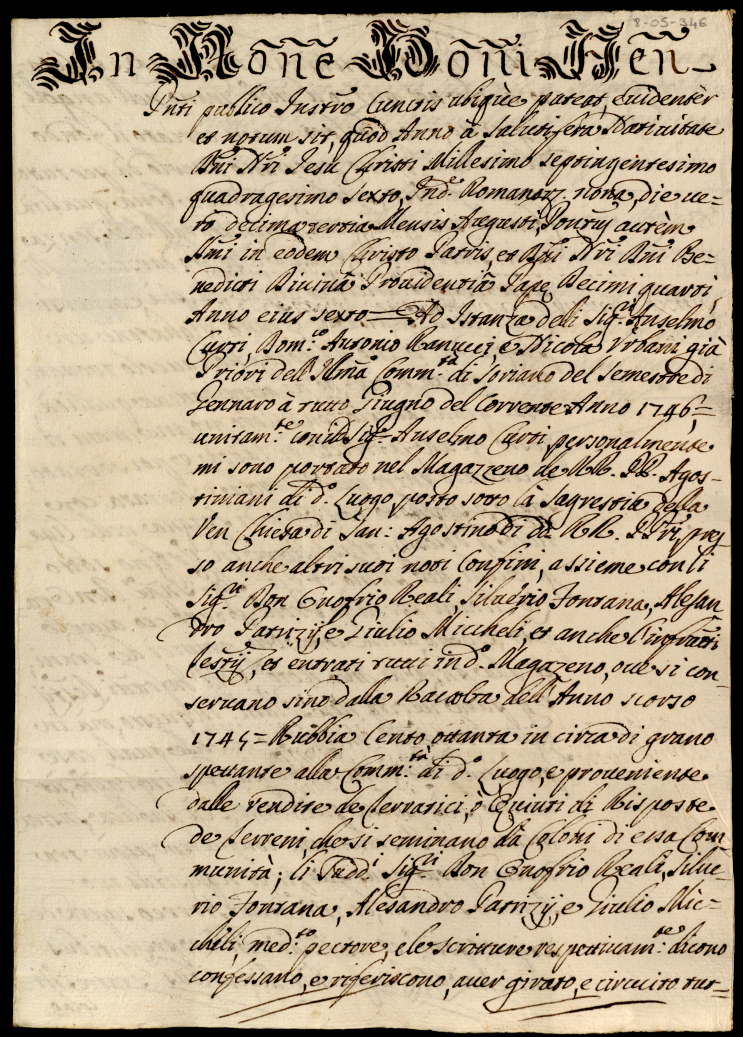 8-05-346
In Noñe Dom̃i Am̃en
Pñti publico Instr̃o Cunctis ubique pateat, euidentèr
et notum sit, quod Anno à Salutifera Natiuitate
Dñi Nr̃i Iesu Christi Millesimo Septingentesimo
quadragesimo sexto, Ind.e Romanor. nona, die ue=
ro decima tertia Mensis Augusti, autèm
in eodem Christo Patris, et Dñi Nr̃i Dñi Be=
nedicti Diuinâ Prouidentiâ Papę Decimi quarti,
Anno eius Sexto = Ad Istanza delli Sig.ri Anselmo
Curti, Dom.co Antonio Ranucci, e Nicola Vrbani già
Priori dell'Ill̃ma Comm.tà di Soriano del semestre di
Gennaro à tutto Giugno del Corrente Anno 1746=
unitam.te con il Sig.r Anselmo Curti personalmente
mi sono portato nel Magazzeno de RR. PP. Agos=
tiniani di d.o Luogo posto sotto la Sagrestia della
Ven Chiesa di San: Agostino di d.i RR. PP̃ri, pres=
so anche altri suoi noti Confini, assieme con li
Sig.ri Don Onofrio Reali, Siluerio Fontana, Alesan=
dro Patrizij, e Giulio Miccheli, et anche l'infratti
Testij, et entrati tutti in d.o Magazeno, oue si con=
seruano sino dalla Racolta dell'Anno scorso
1745= Rubbia Cento ottanta in circa di grano
spettante alla Comm.tà di d.o Luogo, e proueniente
dalle vendite de Terratici, ò Quinti di Risposte
de Terreni, che si seminano da Coloni di essa Com=
munità; li Sudd.i Sig.ri Don Onofrio Reali, Silue=
rio Fontana, Alesandro Patrizij, e Giulio Mic=
cheli, med.to pectore, e le scritture respettiuam.te dicono
confessano, e riferiscono, auer girato, e circuito tut=